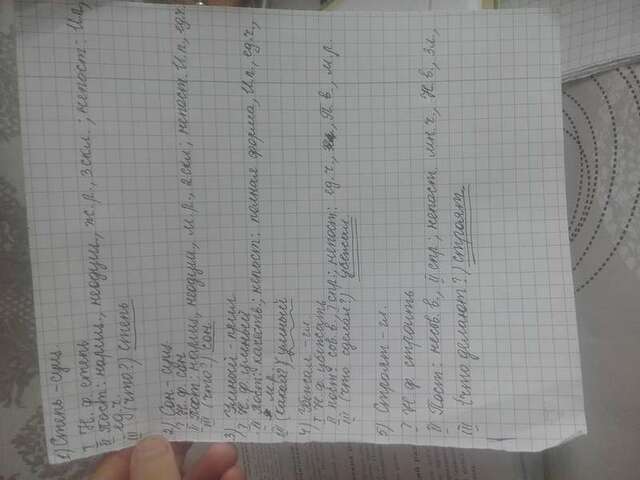 1) Степь - сущ.
I Н. ф. степь
II Пост: нариц., неодуш., ж. р., 3 скл.; непост: И.п.,
ед.ч.
III (что?) степь
2) Сон - сущ.
I Н. ф. сон
II Пост: нариц, неодуш., м. р., 2 скл; непост. И.п., ед.ч.
III (что?) сон
3) Умный - прил.
I Н. ф. умный
II Пост: качеств.; непост: полная форма, И.п., ед.ч.,
м.р.
III (какой?) умный
4) Убежал - гл.
I Н. ф. убежать
II пост: сов. в., I спр.; непост: ед. ч., П. в., м. р.
III (что сделал?) убежал
5) Строят - гл.
I Н. ф. строить
II Пост: несов. в., II спр; непост. мн. ч., Н. в., 3 л.,
III (что делают?) строят